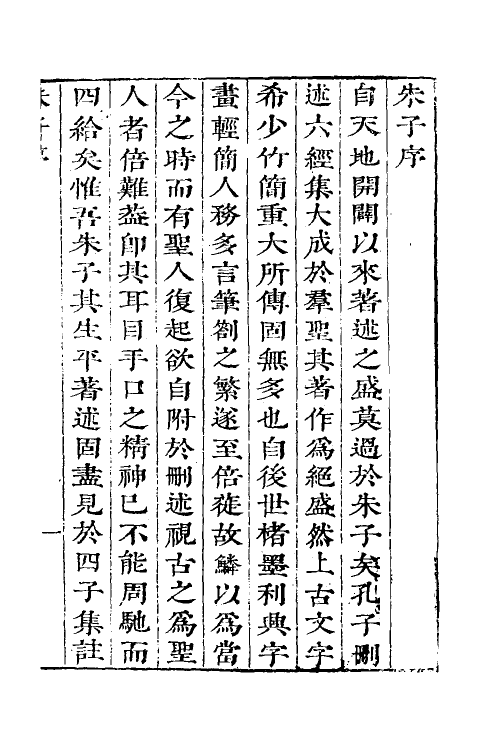 朱子序
自天地開闢以來著述之盛莫過於朱子矣孔子刪
述六經集大成於羣聖其著作爲絕盛然上古文字
希少竹簡重大所傳固無多也自後世楮墨利興字
畫輕簡人務多言筆劄之繁遂至倍蓰故鱗以爲當
今之時而有聖人復起欲自附於刪述視古之爲聖
人者倍難葢卽其耳目手口之精神已不能周馳而
四給矣惟吾朱子其生平著述固盡見於四子集註
朱子序
一